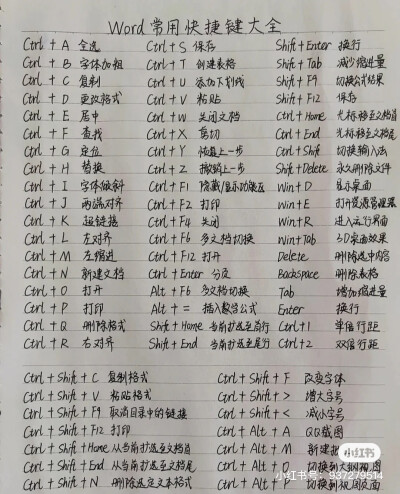 Word常用快捷键大全
Ctrl + A 全选 Ctrl + S 保存 Shift+Enter 换行
Ctrl + B 字体加粗 Ctrl + T 创建表格 Shift + Tab 减少缩进量
Ctrl + C 复制 Ctrl + U 添加下划线 Shift + F9 切换公式结果
Ctrl + D 更改格式 Ctrl + V 粘贴 Shift + F12 保存
Ctrl + E 居中 Ctrl + W 关闭文档 Ctrl+Home 光标移至文档首
Ctrl + F 查找 Ctrl + X 剪切 Ctrl + End 光标移至文档尾
Ctrl + G 定位 Ctrl + Y 恢复上一步 Ctrl + Shift 切换输入法
Ctrl + H 替换 Ctrl + Z 撤销上一步 Shift+Delete 永久删除文件
Ctrl + I 字体倾斜 Ctrl + F1 隐藏/显示功能区 Win+D 显示桌面
Ctrl + J 两端对齐 Ctrl + F2 打印 Win+E 打开资源管理器
Ctrl + K 超链接 Ctrl + F4 关闭 Win+R 进入运行界面
Ctrl + L 左对齐 Ctrl + F6 多文档切换 Win+Tab 3D桌面效果
Ctrl + M 左缩进 Ctrl + F12 打开 Delete 删除选中内容
Ctrl + N 新建文档 Ctrl + Enter 分页 Backspace 删除表格
Ctrl + O 打开 Alt + F6 多文档切换 Tab 增加缩进量
Ctrl + P 打印 Alt + = 插入数学公式 Enter 换行
Ctrl + Q 删除格式 Shift + Home 当前扩选至首行 Ctrl+1 单倍行距
Ctrl + R 右对齐 Shift + End 当前扩选至尾行 Ctrl+2 双倍行距
Ctrl + Shift + C 复制格式 Ctrl + Shift + F 改变字体
Ctrl + Shift + V 粘贴格式 Ctrl + Shift + > 增大字号
Ctrl + Shift + F9 取消目录中的链接 Ctrl + Shift + < 减小字号
Ctrl + Shift + F12 打印 Ctrl + Alt + A QQ截图
Ctrl + Shift + Home 从当前扩选至文档首 Ctrl + Alt + M 新建批
Ctrl + Shift + End 从当前扩选至文档尾 Ctrl + Alt + O 切换到大纲视图
Ctrl + Shift + N 删除选定文本格式 Ctrl + Alt + P 切换到页面
小红书
小红书号：937279514